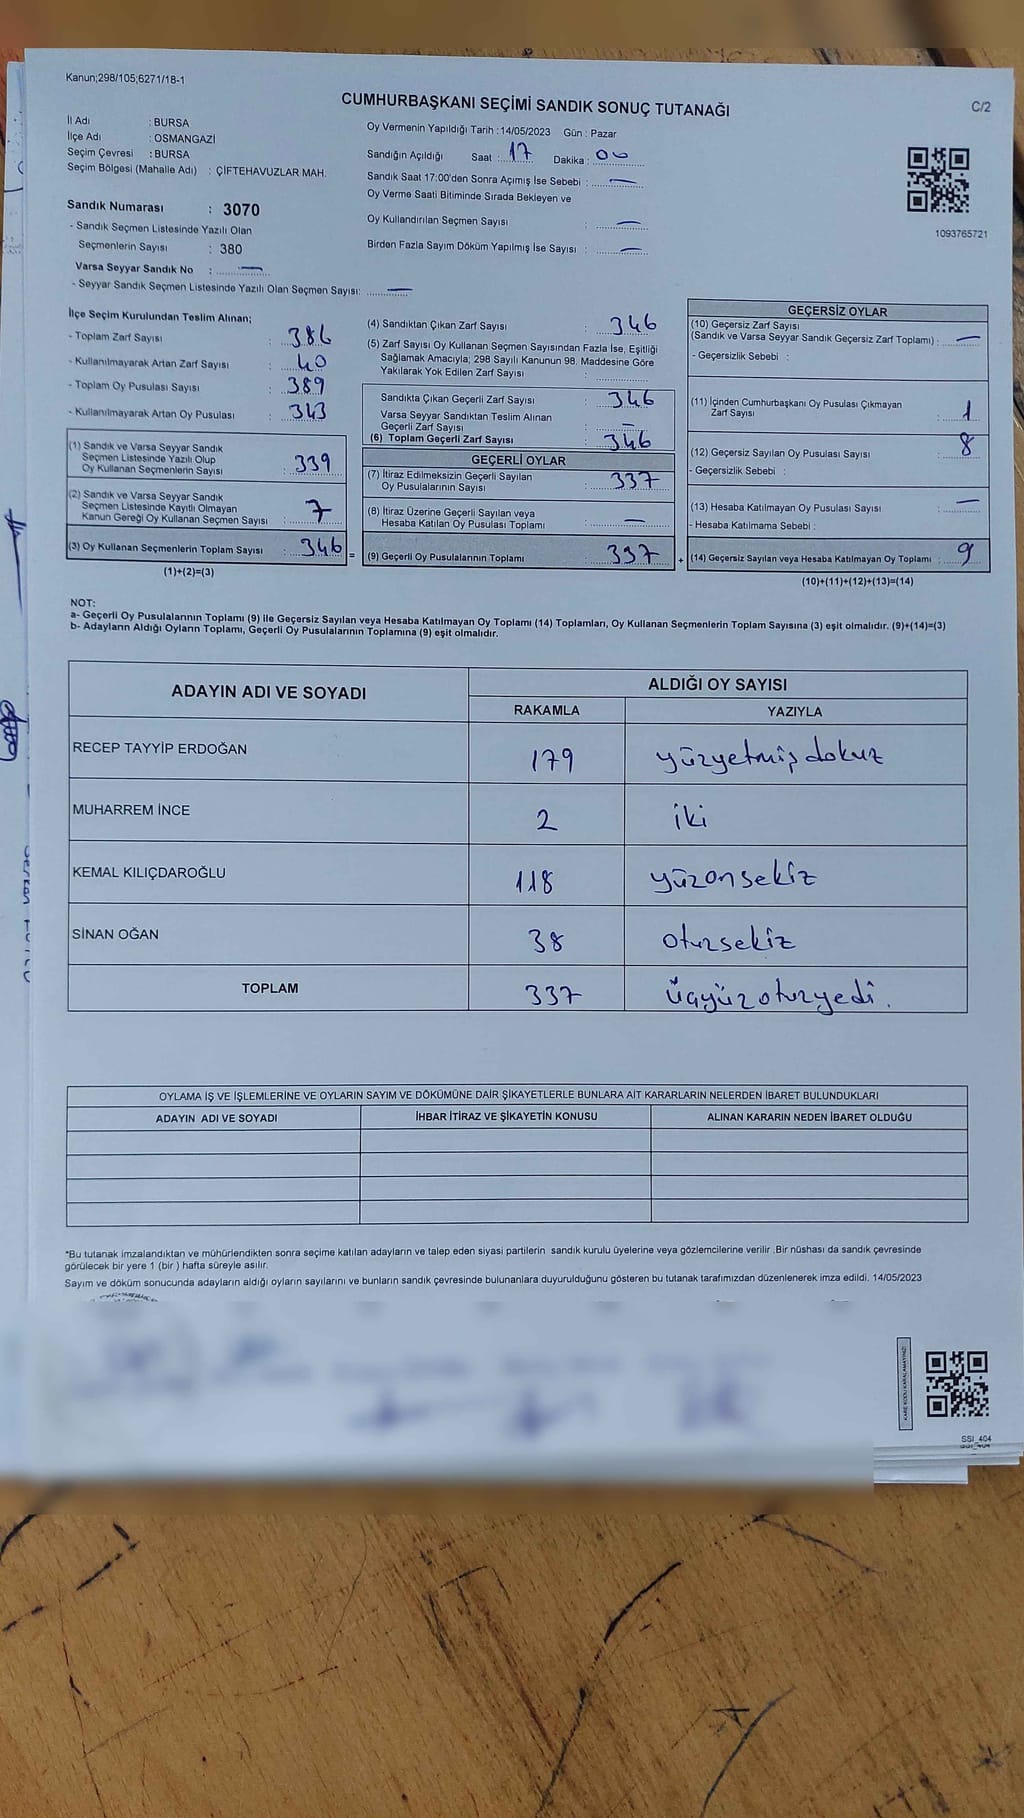 Kanun;298/105;6271/18-1
CUMHURBAŞKANI SEÇİMİ SANDIK SONUÇ TUTANAĞI
C/2
İl Adı : BURSA
İlçe Adı : OSMANGAZİ
Seçim Çevresi : BURSA
Seçim Bölgesi (Mahalle Adı) : ÇİFTEHAVUZLAR MAH.
Sandık Numarası : 3070
- Sandık Seçmen Listesinde Yazılı Olan
Seçmenlerin Sayısı : 380
Varsa Seyyar Sandık No : —
- Seyyar Sandık Seçmen Listesinde Yazılı Olan Seçmen Sayısı: —
Oy Vermenin Yapıldığı Tarih : 14/05/2023 Gün : Pazar
Sandığın Açıldığı Saat : 17 Dakika : 00
Sandık Saat 17:00'den Sonra Açımış İse Sebebi : —
Oy Verme Saati Bitiminde Sırada Bekleyen ve
Oy Kullandırılan Seçmen Sayısı : —
Birden Fazla Sayım Döküm Yapılmış İse Sayısı : —
1093765721
İlçe Seçim Kurulundan Teslim Alınan;
- Toplam Zarf Sayısı : 386
- Kullanılmayarak Artan Zarf Sayısı : 40
- Toplam Oy Pusulası Sayısı : 389
- Kullanılmayarak Artan Oy Pusulası : 343
(1) Sandık ve Varsa Seyyar Sandık
Seçmen Listesinde Yazılı Olup
Oy Kullanan Seçmenlerin Sayısı : 339
(2) Sandık ve Varsa Seyyar Sandık
Seçmen Listesinde Kayıtlı Olmayan
Kanun Gereği Oy Kullanan Seçmen Sayısı : 7
(3) Oy Kullanan Seçmenlerin Toplam Sayısı : 346 =
(1)+(2)=(3)
(4) Sandıktan Çıkan Zarf Sayısı : 346
(5) Zarf Sayısı Oy Kullanan Seçmen Sayısından Fazla İse, Eşitliği
Sağlamak Amacıyla; 298 Sayılı Kanunun 98. Maddesine Göre
Yakılarak Yok Edilen Zarf Sayısı :
Sandıkta Çıkan Geçerli Zarf Sayısı : 346
Varsa Seyyar Sandıktan Teslim Alınan
Geçerli Zarf Sayısı : —
(6) Toplam Geçerli Zarf Sayısı : 346
GEÇERLİ OYLAR
(7) İtiraz Edilmeksizin Geçerli Sayılan
Oy Pusulalarının Sayısı : 337
(8) İtiraz Üzerine Geçerli Sayılan veya
Hesaba Katılan Oy Pusulası Toplamı : —
(9) Geçerli Oy Pusulalarının Toplamı : 337 +
GEÇERSİZ OYLAR
(10) Geçersiz Zarf Sayısı
(Sandık ve Varsa Seyyar Sandık Geçersiz Zarf Toplamı) : —
- Geçersizlik Sebebi :
(11) İçinden Cumhurbaşkanı Oy Pusulası Çıkmayan
Zarf Sayısı : 1
(12) Geçersiz Sayılan Oy Pusulası Sayısı : 8
- Geçersizlik Sebebi :
(13) Hesaba Katılmayan Oy Pusulası Sayısı : —
- Hesaba Katılmama Sebebi :
(14) Geçersiz Sayılan veya Hesaba Katılmayan Oy Toplamı : 9
(10)+(11)+(12)+(13)=(14)
NOT:
a- Geçerli Oy Pusulalarının Toplamı (9) ile Geçersiz Sayılan veya Hesaba Katılmayan Oy Toplamı (14) Toplamları, Oy Kullanan Seçmenlerin Toplam Sayısına (3) eşit olmalıdır. (9)+(14)=(3)
b- Adayların Aldığı Oyların Toplamı, Geçerli Oy Pusulalarının Toplamına (9) eşit olmalıdır.
ADAYIN ADI VE SOYADI ALDIĞI OY SAYISI
RAKAMLA YAZIYLA
RECEP TAYYİP ERDOĞAN 179 yüzyetmiş dokuz
MUHARREM İNCE 2 iki
KEMAL KILIÇDAROĞLU 118 yüzonsekiz
SİNAN OĞAN 38 otuzsekiz
TOPLAM 337 üçyüzotuzyedi.
OYLAMA İŞ VE İŞLEMLERİNE VE OYLARIN SAYIM VE DÖKÜMÜNE DAİR ŞİKAYETLERLE BUNLARA AİT KARARLARIN NELERDEN İBARET BULUNDUKLARI
ADAYIN ADI VE SOYADI İHBAR İTİRAZ VE ŞİKAYETİN KONUSU ALINAN KARARIN NEDEN İBARET OLDUĞU
*Bu tutanak imzalandıktan ve mühürlendikten sonra seçime katılan adayların ve talep eden siyasi partilerin sandık kurulu üyelerine veya gözlemcilerine verilir .Bir nüshası da sandık çevresinde
görülecek bir yere 1 (bir ) hafta süreyle asılır.
Sayım ve döküm sonucunda adayların aldığı oyların sayılarını ve bunların sandık çevresinde bulunanlara duyurulduğunu gösteren bu tutanak tarafımızdan düzenlenerek imza edildi. 14/05/2023
KARE KODU KARALAMAYINIZ!
SSI_404